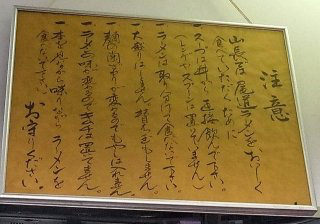 注意
山長の尾道ラーメンをおいしく
食べていただくために
一スープは丼から直接飲んで下さい。
（レンゲ、スプーン置いてません）
一ラーメンは取り分けて食べないで下さい。
一大盛りはしません。替え玉もしません。
一麺の固さが変わるのでもやしは入れません。
一ラーメンの味が変わるのでキムチは置いてません。
一本を見ながら喋りながらラーメンを
食べないで下さい。
お守りください。